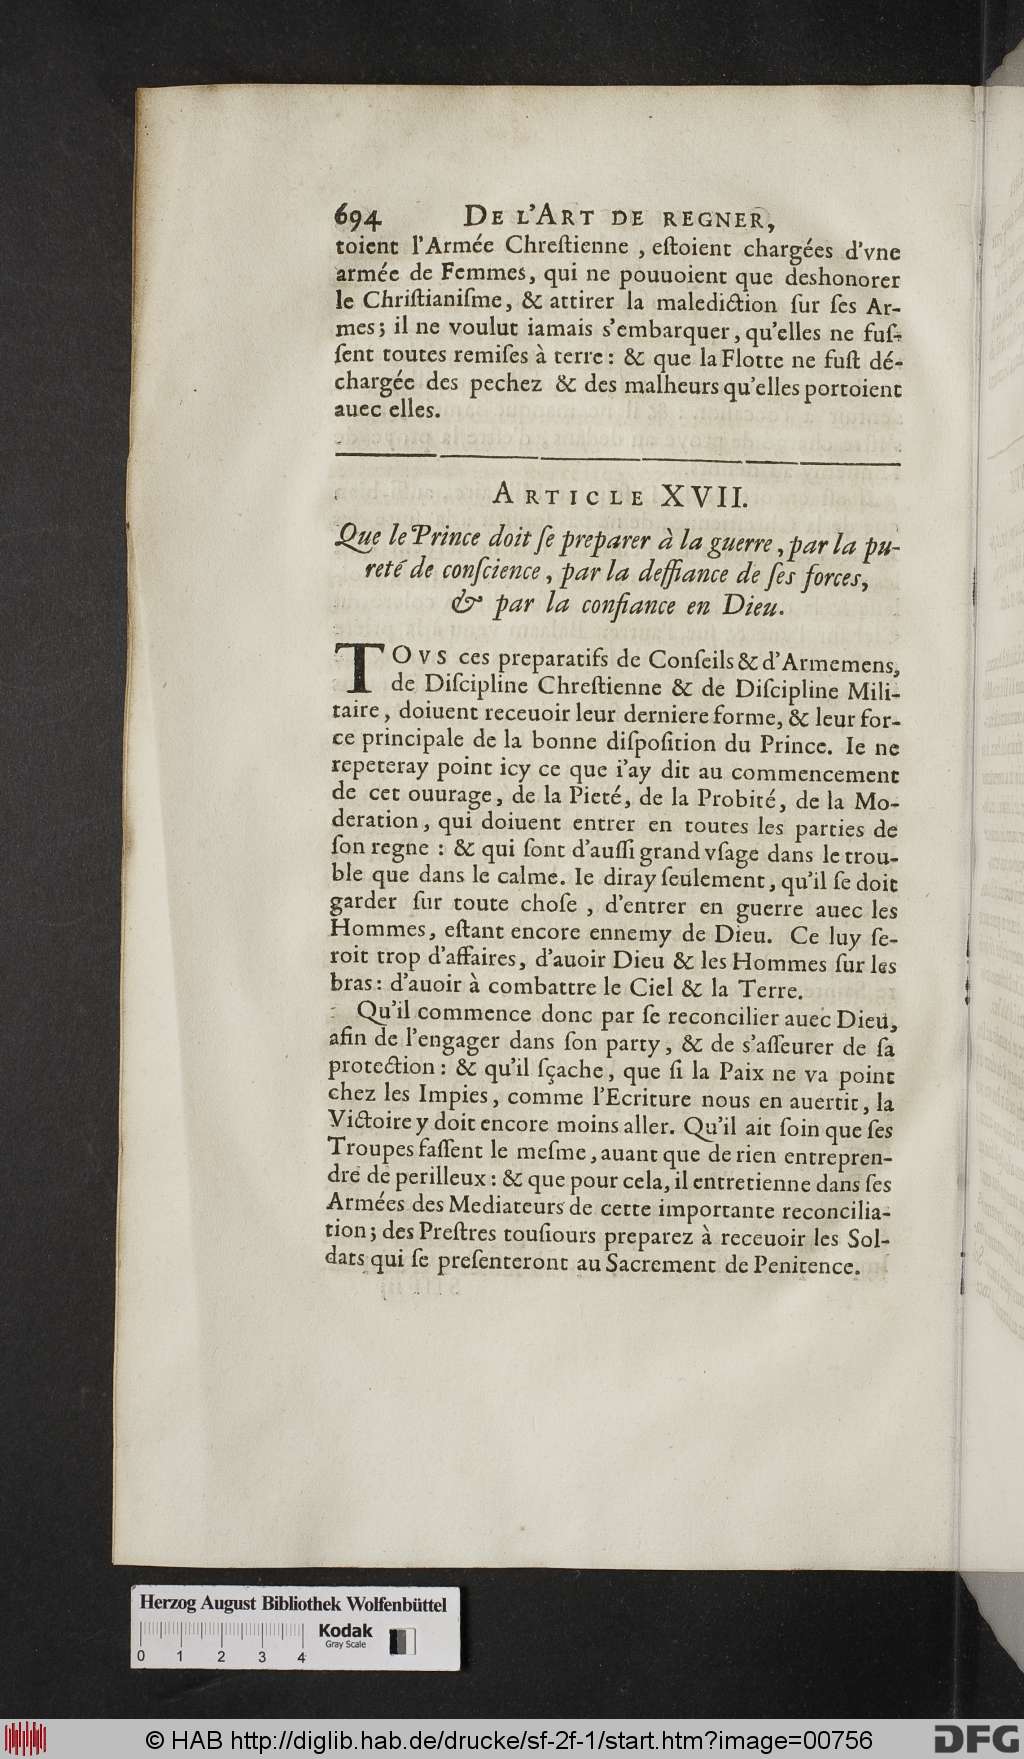 694 DE L'ART DE REGNER,
toient l'Armée Chreſtienne, eſtoient chargées d'vne
armée de Femmes, qui ne pouuoient que deshonorer
le Chriſtianiſme, & attirer la malediction ſur ſes Ar-
mes; il ne voulut iamais s'embarquer, qu'elles ne fuſ-
ſent toutes remiſes à terre: & que la Flotte ne fuſt dé-
chargée des pechez & des malheurs qu'elles portoient
auec elles.
ARTICLE XVII.
Que le Prince doit ſe preparer à la guerre, par la pu-
reté de conſcience, par la deffiance de ſes forces,
& par la confiance en Dieu.
TOVS ces preparatifs de Conſeils & d'Armemens,
de Diſcipline Chreſtienne & de Diſcipline Mili-
taire, doiuent receuoir leur derniere forme, & leur for-
ce principale de la bonne diſpoſition du Prince. Ie ne
repeteray point icy ce que i'ay dit au commencement
de cet ouurage, de la Pieté, de la Probité, de la Mo-
deration, qui doiuent entrer en toutes les parties de
ſon regne : & qui ſont d'auſſi grand vſage dans le trou-
ble que dans le calme. Ie diray ſeulement, qu'il ſe doit
garder ſur toute choſe, d'entrer en guerre auec les
Hommes, eſtant encore ennemy de Dieu. Ce luy ſe-
roit trop d'affaires, d'auoir Dieu & les Hommes ſur les
bras: d'auoir à combattre le Ciel & la Terre.
Qu'il commence donc par ſe reconcilier auec Dieu,
afin de l'engager dans ſon party, & de s'aſſeurer de ſa
protection: & qu'il ſçache, que ſi la Paix ne va point
chez les Impies, comme l'Ecriture nous en auertit, la
Victoire y doit encore moins aller. Qu'il ait ſoin que ſes
Troupes faſſent le meſme, auant que de rien entrepren-
dre de perilleux: & que pour cela, il entretienne dans ſes
Armées des Mediateurs de cette importante reconcilia-
tion; des Preſtres touſiours preparez à receuoir les Sol-
dats qui ſe preſenteront au Sacrement de Penitence.
Herzog August Bibliothek Wolfenbüttel
Kodak
Gray Scale
0 1 2 3 4
© HAB http://diglib.hab.de/drucke/sf-2f-1/start.htm?image=00756
DFG